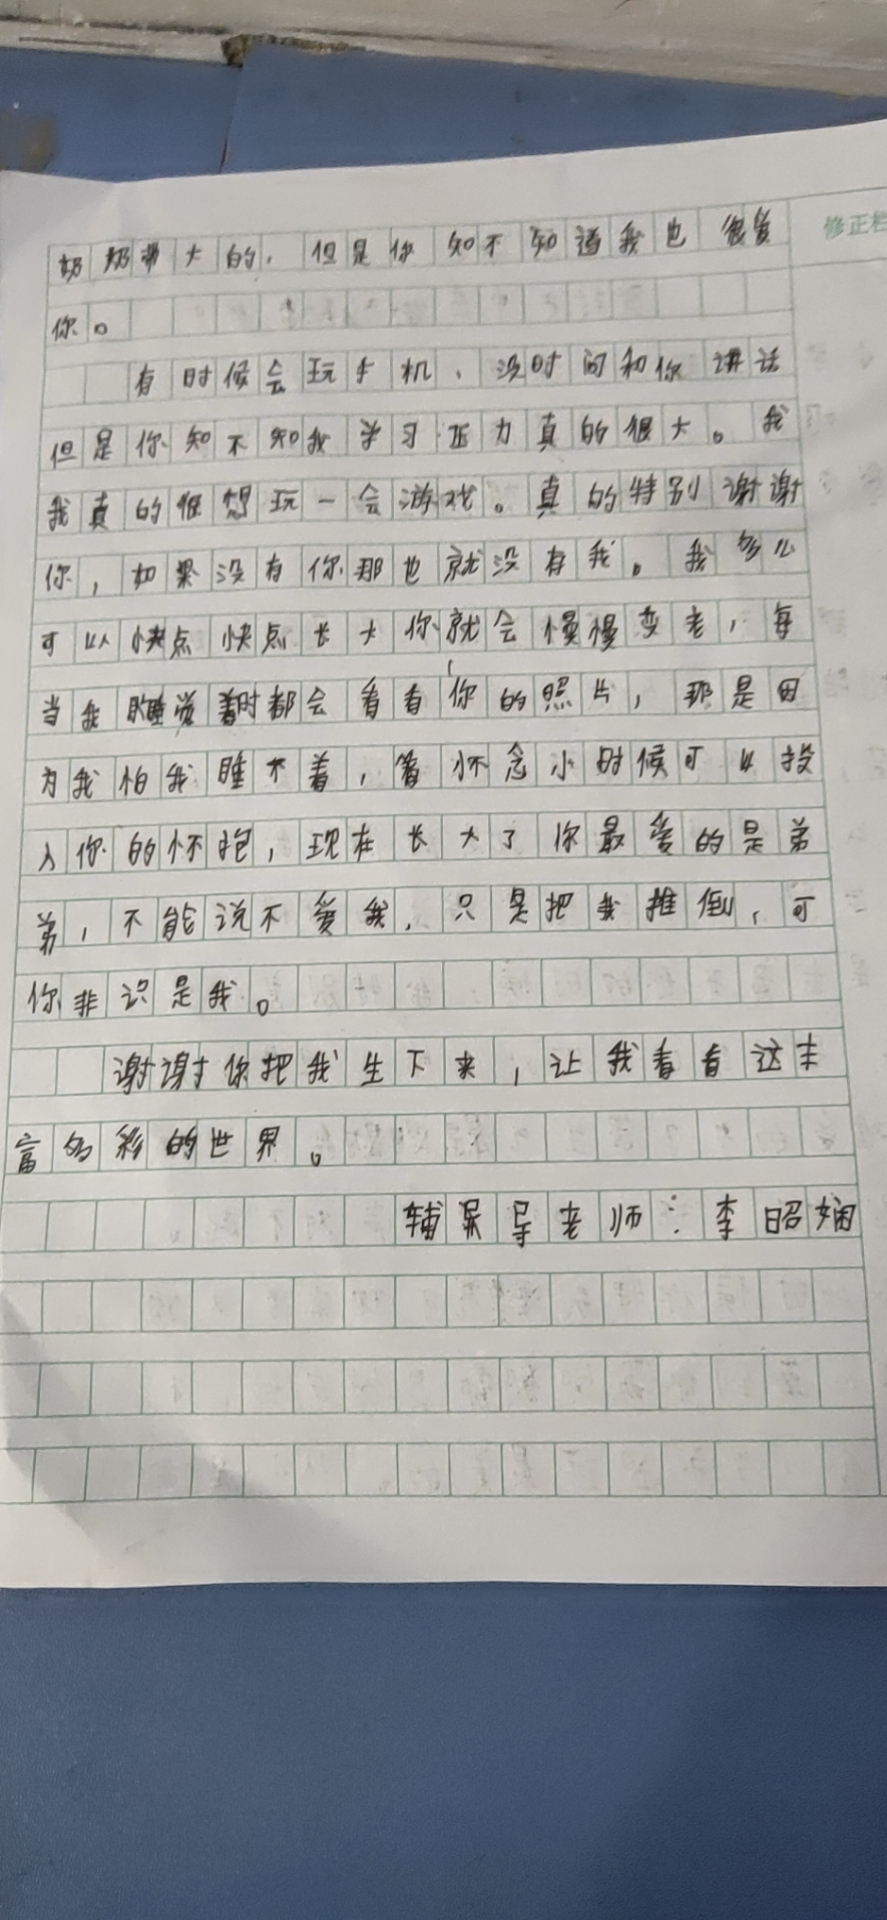 奶奶带大的，但是你知不知道我也很爱
修正栏
你。
有时候会玩手机，没时间和你讲话
但是你知不知我学习压力真的很大。我
我真的很想玩一会游戏。真的特别谢谢
你，如果没有你那也就没有我。我多么
可以快点快点长大你就会慢慢变老，每
当我睡觉着时都会看看你的照片，那是因
为我怕我睡不着，着怀念小时候可以投
入你的怀抱，现在长大了你最爱的是弟
弟，不能说不爱我，只是把我推倒，可
你非识是我。
谢谢你把我生下来，让我看看这丰
富多彩的世界。
辅导老师：李昭娴